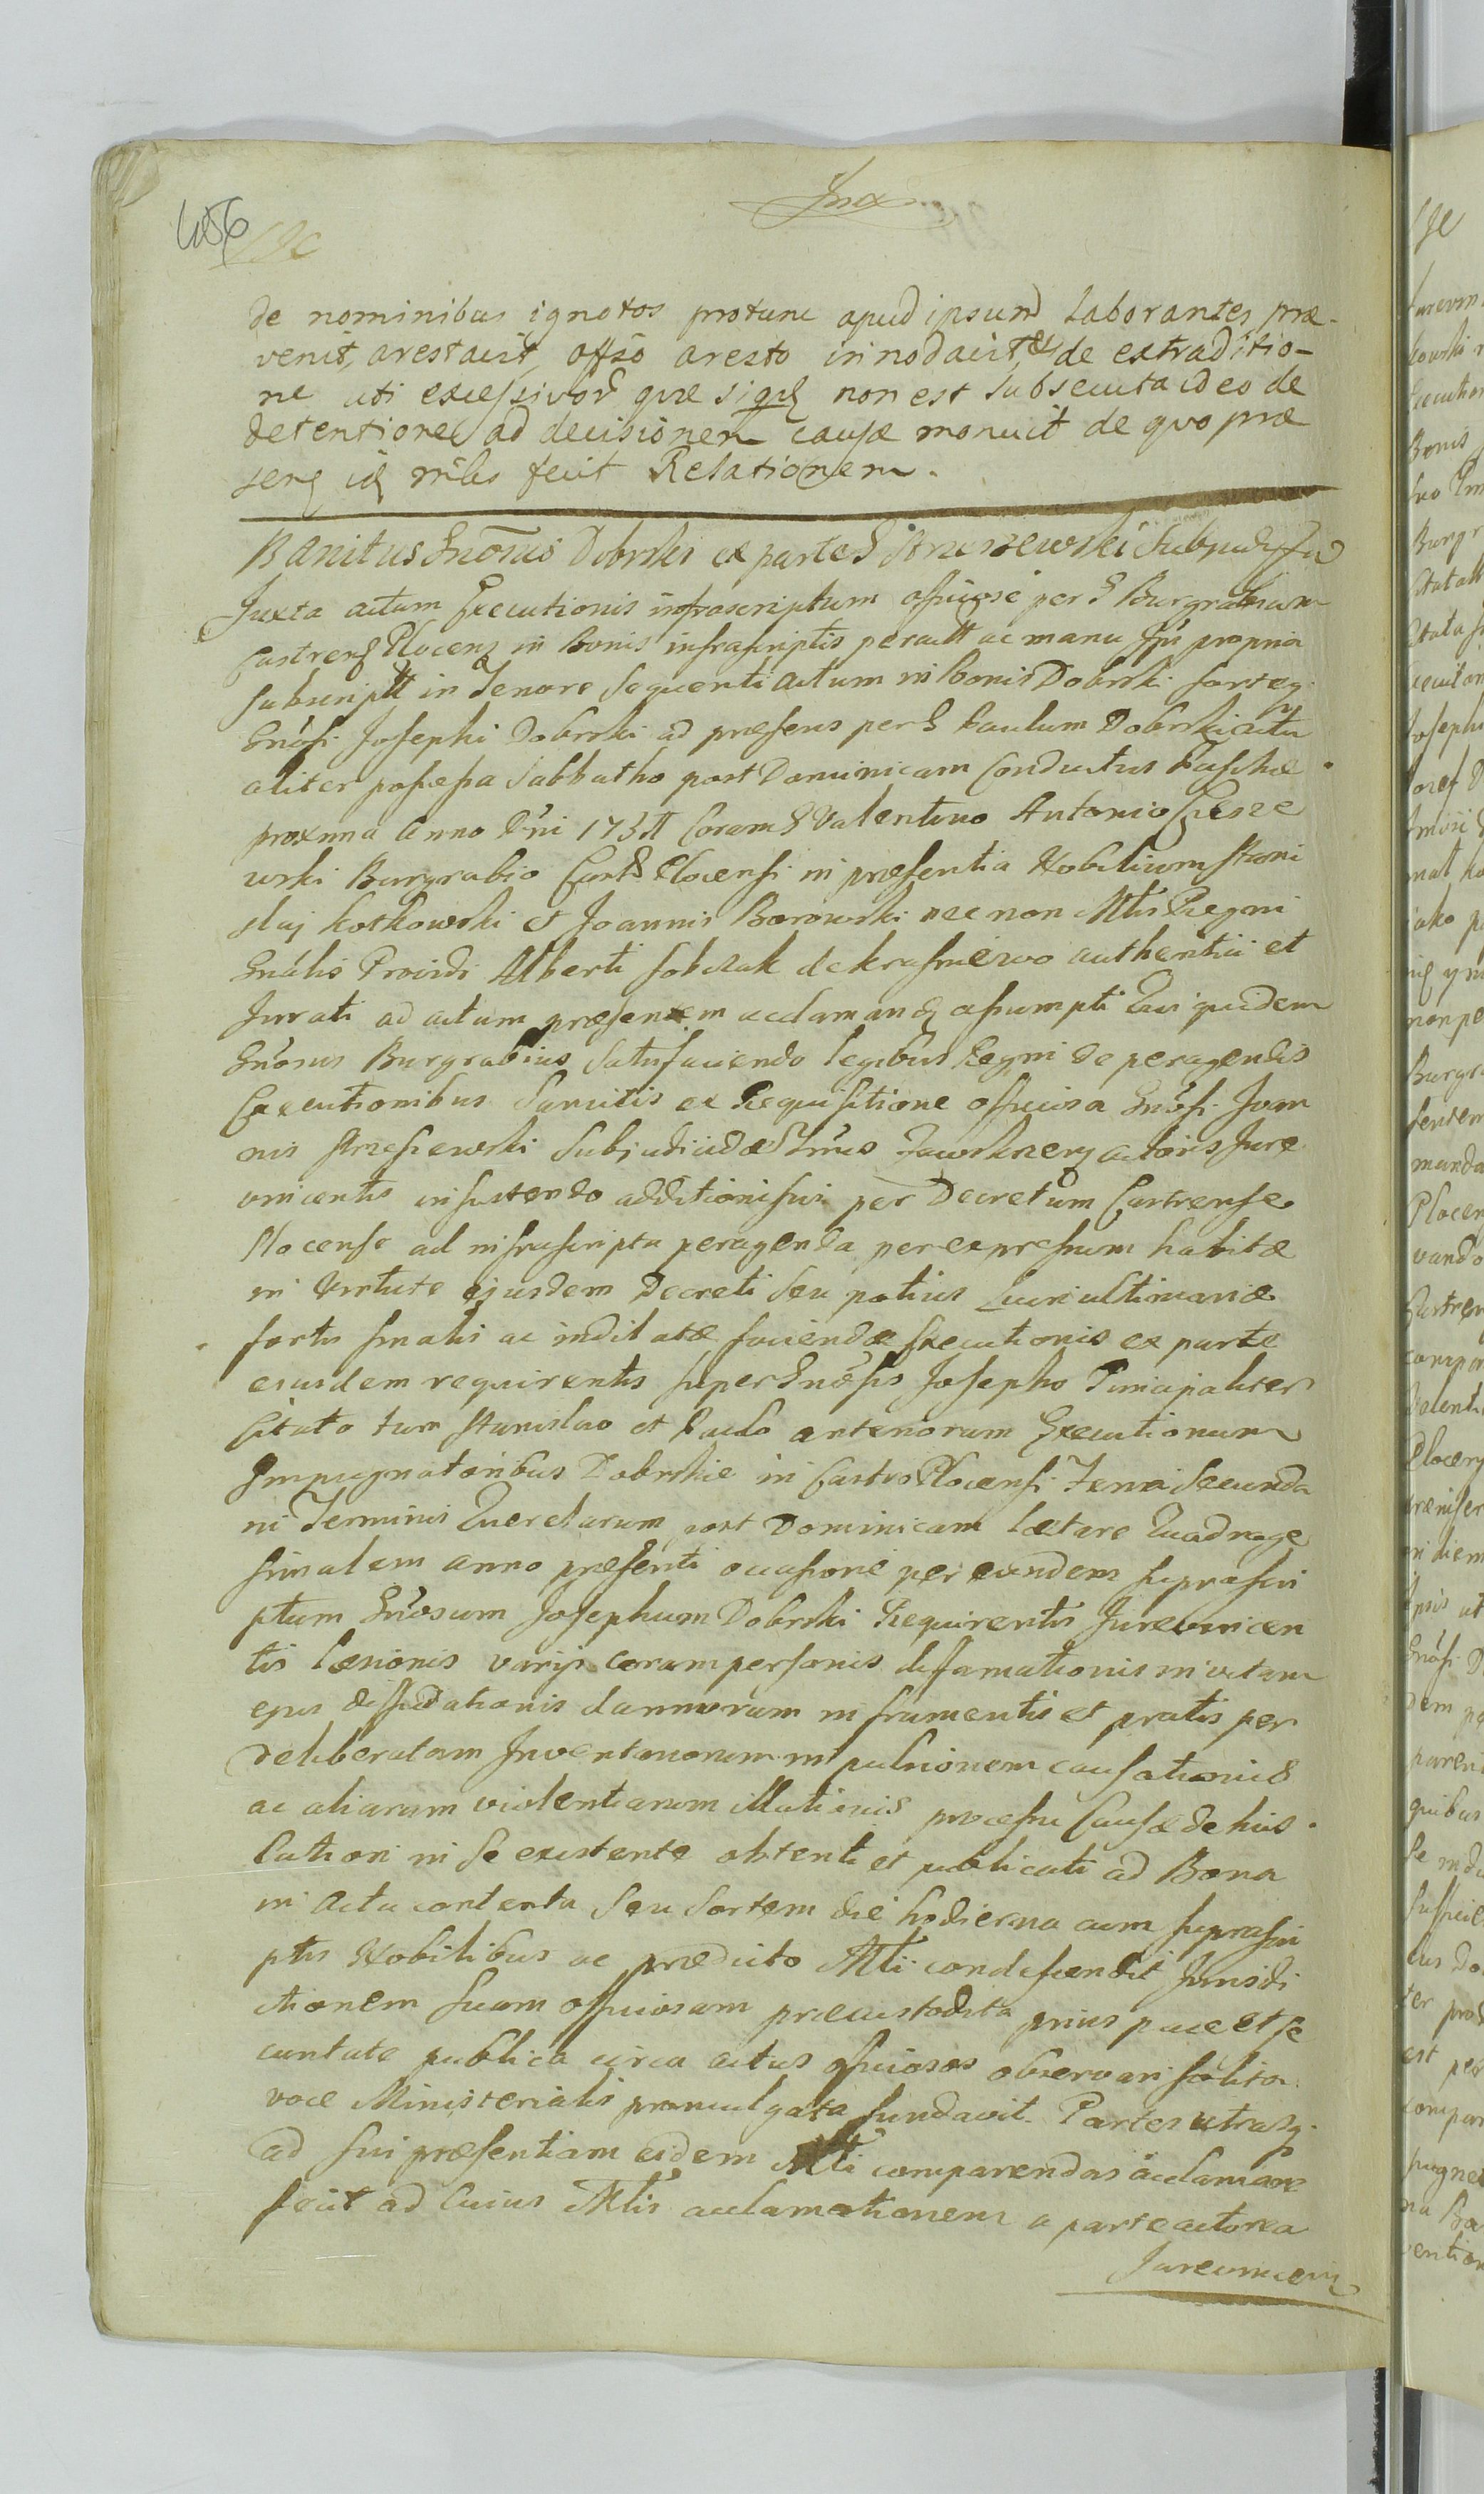 456
de nominibus ignotos protunc apud ipsum laborantes præ-
venit, arestavit, offõ aresto innodavit, et de extraditio-
ne uti excessivor quæ siquid non est subsecuta ideo de
detentione ad decisionem causæ monuit de quo præ
sens id mls fecit Relationem.
Banitus Gnõsus Dobrski ex parte G Strzeszewski Subjudi
Juxta actum Executionis infrascriptum officiose per G Burgrabium
Castrens Plocens in Bonis infrascriptis peractt ac manu sui propria
subscriptt in Tenore sequenti actum in bonis Dobrski sorte
Gnõsi Josephi Dobrski ad præsens per G Paulum Dobrski actu
aliter possessa Sabbatho post Dominicam Conductus Paschæ
proxima Anno Dni Coram G Valentino Antonio
wski Burgrabio Cast Plocensi in præsentia Nobilium Stani
slai Kotkowski et Joannis Borowski nec non Mtis Regni
Gnãlis Providi Alberti Sobczak de Krasniewo authentici et
Jurati ad actum præsentem acclamand assumpti Qui quidem
Gnõsus Burgrabius satisfaciendo legibus Regni de peragendis
Executionibus Sancitis ex Requisitione officiosa Gnõsi Joan
nis Strzeszewski Subjudicidæ actoris Jure
vincentis insistendo additioni sui per Decretum Castrense
Plocense ad infrascripta peragenda per expressum habitæ
in Virtute ejusdem Decreti seu potius Lucri ultimariæ
fortis finalis ac indilatæ faciendæ Executionis ex parte
ejusdem requirentis super Gnõsis Josepho Principaliter
Citato tum Stanislao et Paulo anteriorum Executionum
Impugnatoribus Dobrskie in Castro Plocensi Feria Secunda
in Terminis Querelarum post Dominicam Lætare Quadrage
simalem anno præsenti occasione per eundem suprascri
ptum Gnõsum Josephum Dobrski Requirentis Jurevincen
tis læsionis varijs coram personis diffamationis in vitam
ejus diffidationis damnorum in frumentis et pratis per
deliberatam Inventariorum impulsionem causationis
ac aliarum violentiarum illationis processu Causæ de his
Lation in se existente obtenti et publicati ad Bona
in Actu contenta seu Sortem die hodierna cum suprascri
ptis Nobilibus ac prædicto Mtli condescendit Jurisdi
ctionem suam officiosam præcustodita prius pace et se
curitate publica circa actus officiosos observari solita
voce Ministerialis promulgata fundavit. Partes utrasq
ad sui præsentiam eidem Mtli comparendas acclamare
fecit ad Cuius Mtlis acclamationem a parte actorea
Jurevincen